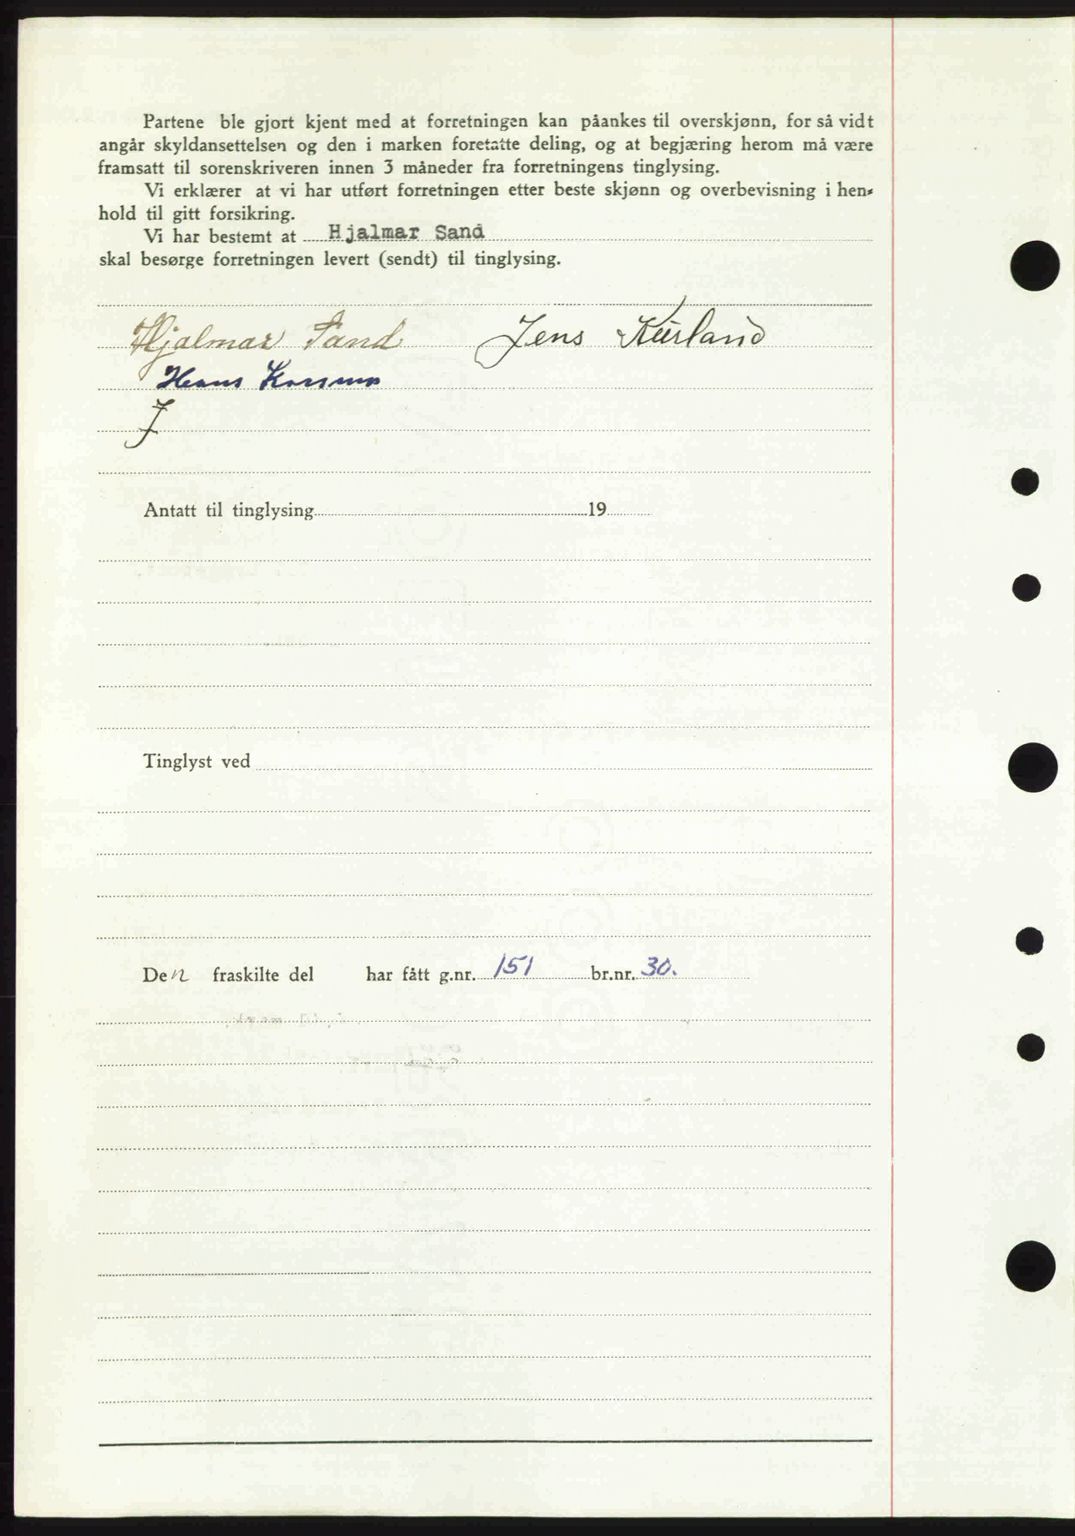 Partene ble gjort kjent med at forretningen kan påankes til overskjønn, for så vidt
angår skyldansettelsen og den i marken foretatte deling, og at begjæring herom må være
framsatt til sorenskriveren innen 3 måneder fra forretningens tinglysing.
Vi erklærer at vi har utført forretningen etter beste skjønn og overbevisning i hen-
hold til gitt forsikring.
Vi har bestemt at Hjalmar Sand
skal besørge forretningen levert (sendt) til tinglysing.
Hjalmar Sand Jens
Hans
J
Antatt til tinglysing 19
Tinglyst ved
Den fraskilte del har fått g.nr. 151 br.nr. 30.